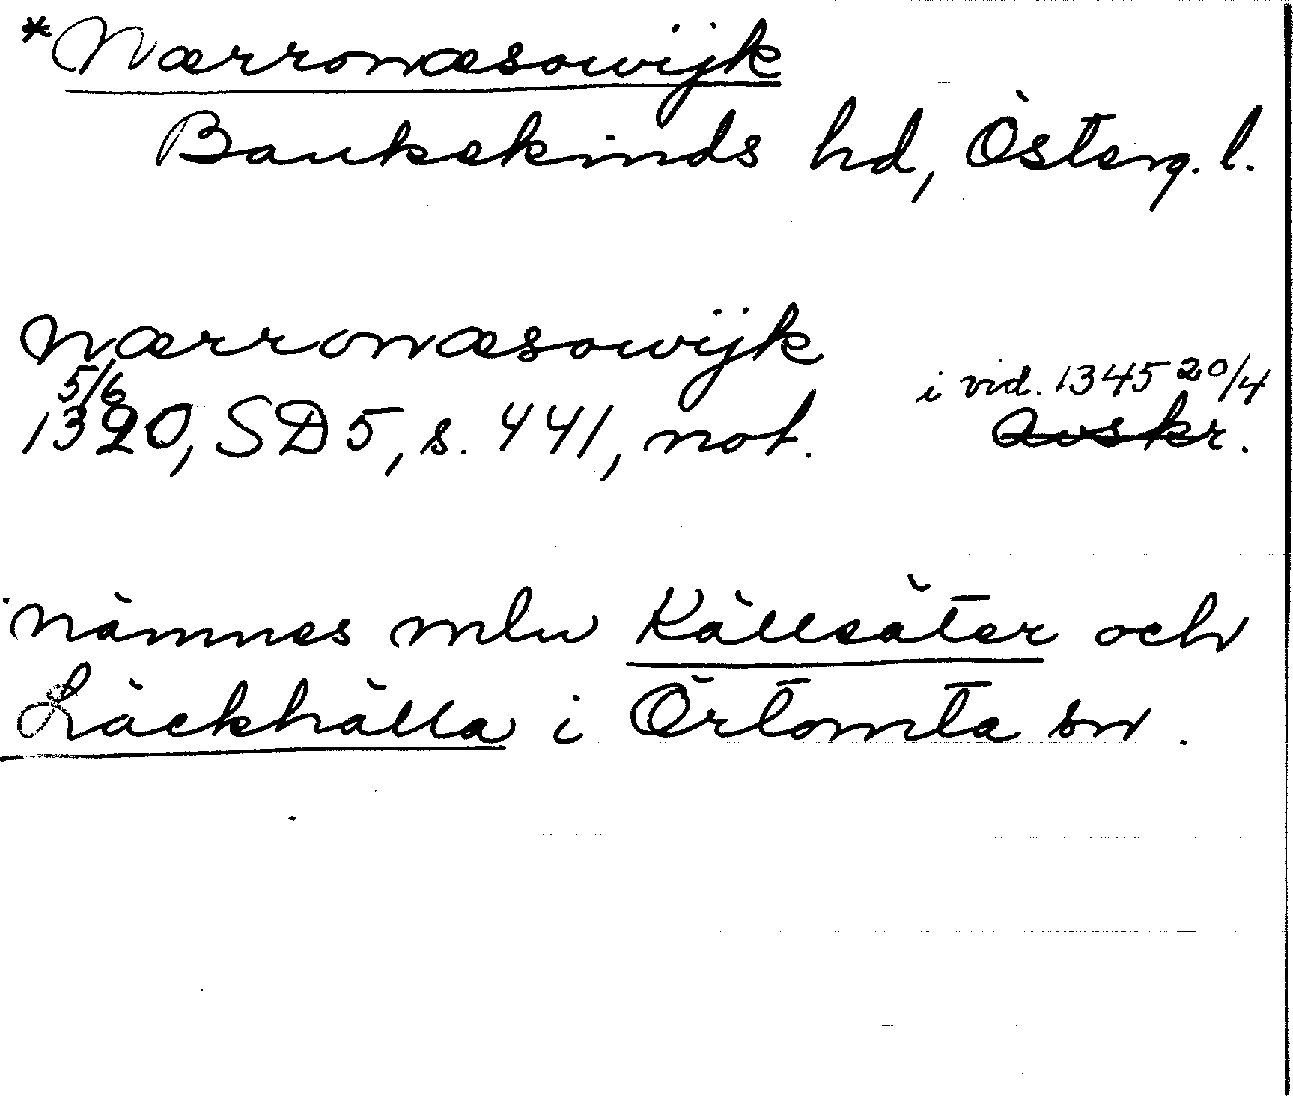 *Nærronæsowijk
Bankekinds hd, Österg. l.
Nærronæsowijk
5/6
1320, SD 5, s. 441, not. i vid. 1345 20/4
avskr.
nämnes mlu Källsäter och
Läckhälla i Örtomta sn.